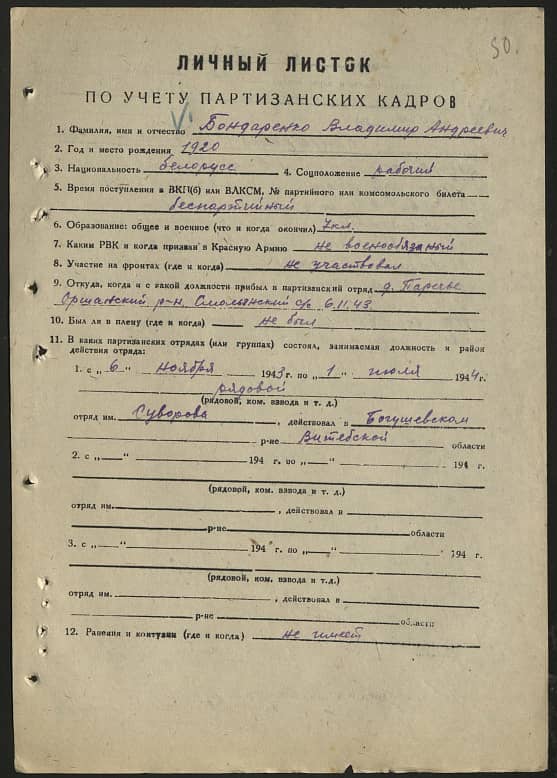 50.
ЛИЧНЫЙ ЛИСТОК
ПО УЧЕТУ ПАРТИЗАНСКИХ КАДРОВ
1. Фамилия, имя и отчество Бондаренко Владимир Андреевич
2. Год и место рождения 1920
3. Национальность белорусс 4. Соцположение рабочий
5. Время поступления в ВКП(б) или ВЛКСМ, № партийного или комсомольского билета
беспартийный
6. Образование: общее и военное (что и когда окончил) 7кл.
7. Каким РВК и когда призван в Красную Армию не военнообязаный
8. Участие на фронтах (где и когда) не участвовал
9. Откуда, когда и с какой должности прибыл в партизанский отряд д.
Оршанский р-н. Смольянский с/с 6.11.43
10. Был ли в плену (где и когда) не был
11. В каких партизанских отрядах (или группах) состоял, занимаемая должность и район
действия отряда:
1. с „6“ ноября 1943 г. по „1“ июля 1944 г.
рядовой
(рядовой, ком. взвода и т. д.)
отряд им. Суворова, действовал в Богушевском
р-не Витебской области
2. с „—“ 194 г. по „—“ 194 г.
(рядовой, ком. взвода и т.д.)
отряд им. , действовал в
р-не области
3. с „—“ 194 г. по „—“ 194 г.
(рядовой, ком. взвода и т.д.)
отряд им. , действовал в
р-не области
12. Ранения и контузии (где и когда) не имеет